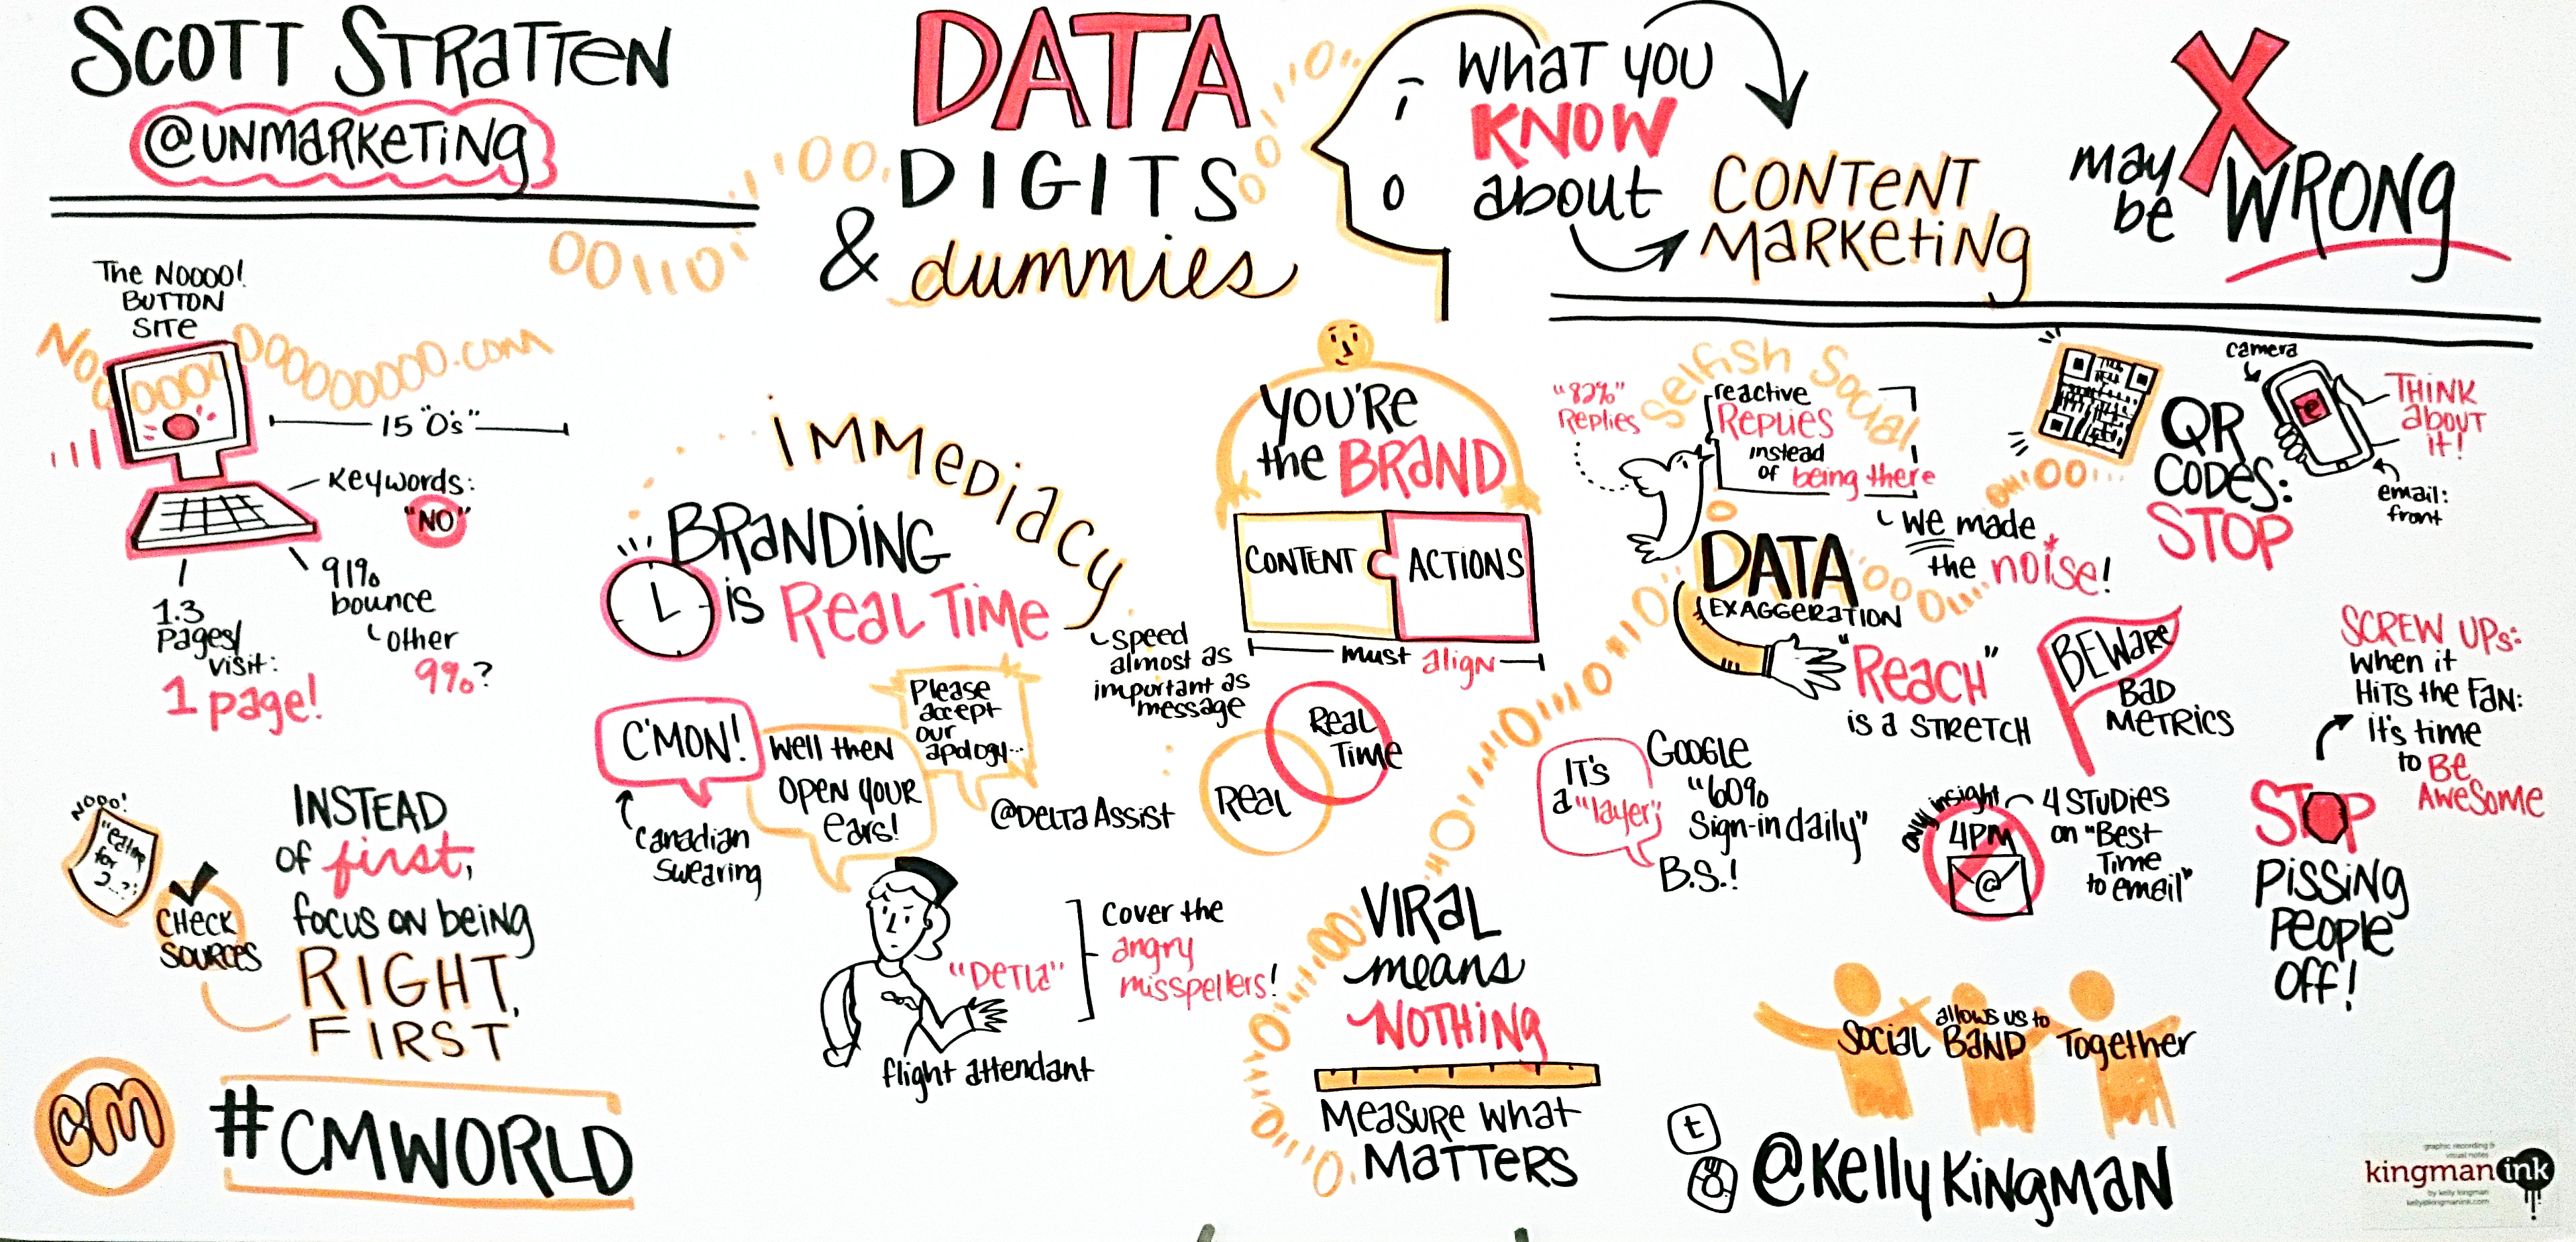 SCOTT STRATTEN
@UNMARKETING
DATA
DIGITS
& dummies
WHAT YOU
KNOW
about
CONTENT
MARKETING
may
be
X
WRONG
The NOOOO!
BUTTON
SITE
NOOOOOOOOOOOOOOO.com
15 "O's"
Keywords:
"NO"
1.3
Pages/
visit:
1 page!
91%
bounce
other
9%?
NOOO!
"eating
for
2...?"
CHECK
SOURCES
INSTEAD
OF first,
focus on being
RIGHT,
FIRST
CM
#CMWORLD
IMMEDIACY
BRANDING
is REAL TIME
speed
almost as
important as
message
C'MON!
Canadian
swearing
Well then
OPEN YOUR
ears!
Please
accept
our
apology...
@DELTA ASSIST
"DETLA"
Cover the
angry
misspellers!
flight attendant
YOU'RE
the BRAND
CONTENT
ACTIONS
must align
Real
Time
Real
VIRAL
means
NOTHING
MEASURE WHAT
MATTERS
Selfish Social
"82%"
Replies
reactive
REPLIES
instead
of being there
we made
the noise!
DATA
EXAGGERATION
"REACH"
is a STRETCH
BEWARE
BAD
METRICS
IT'S
a "layer"
GOOGLE
"60%
Sign-in daily"
B.S.!
only insight
4PM
@
4 STUDIES
on "Best
Time
to email"
QR
CODES:
STOP
camera
THINK
about
it!
email:
front
SCREW UPS:
when it
HITS the FAN:
it's time
to BE
AWESOME
STOP
PISSING
PEOPLE
OFF!
SOCIAL allows us to BAND Together
t
@KELLYKINGMAN
graphic recording &
visual notes
kingman ink
by kelly kingman
kelly@kingmanink.com